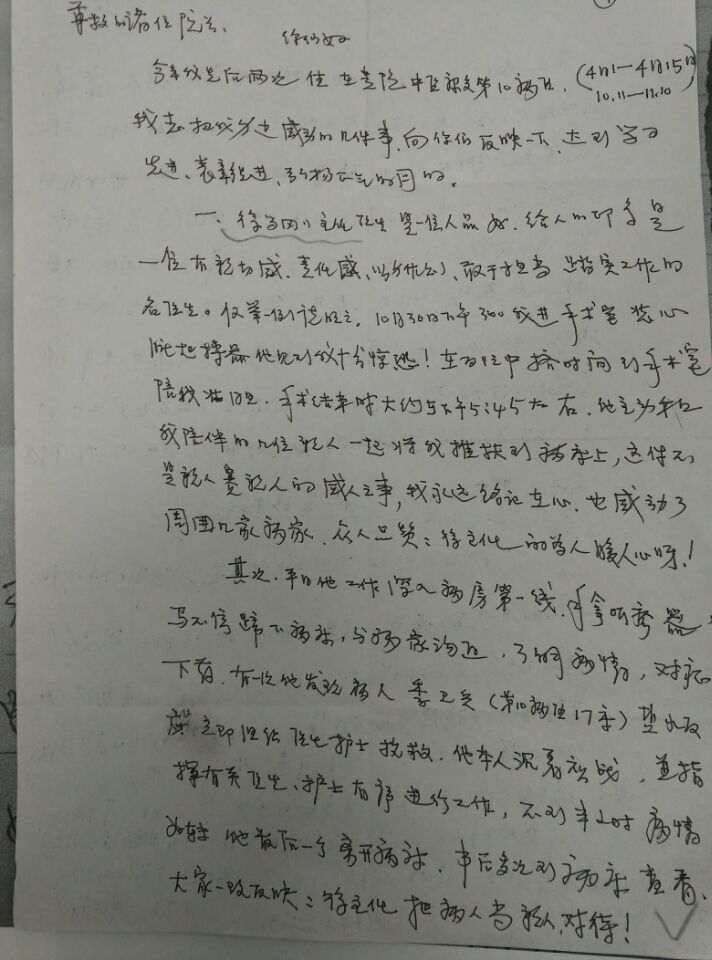 尊敬的诸位院长、
今年我先后两次住在贵院中医锦交第10病区. (4月1—4月15日
10.11—11.10)
我想把我身边感动的几件事,向你们反映一下,达到学习
先进、表率促进、弘扬正气的目的。
一、徐 主任医生是一位人品好、给人的印象是
一位有亲切感、责任感、以 , 敢于担当 踏实工作的
名医生。仅举一例说明之, 10月30日下午3:00我进手术室装心
脏起搏器他见到我十分惊恐!在百忙中挤时间到手术室
陪我 . 手术结束时大约5下午5:45左右. 他主动和
我陪伴的几位亲人一起将我推扶到病床上, 这件不
是亲人赛亲人的感人之事, 我永远铭记在心. 也感动了
周围几家病家. 众人口赞: 徐主任的为人暖人心呀!
其次. 平日他工作深入病房第一线. 手拿听诊器、
马不停蹄下病床, 与病家沟通, 了解病情, 对症
下药. 有一次他发现病人季卫兵 (第10病区17床)
立即组织医生护士抢救. 他本人沉着 战, 直指
挥有关医生、护士有序进行工作, 不到半小时病情
好转 他最后一个离开病床. 事后多次到病床查看.
大家一致反映: 徐主任把病人当亲人对待!